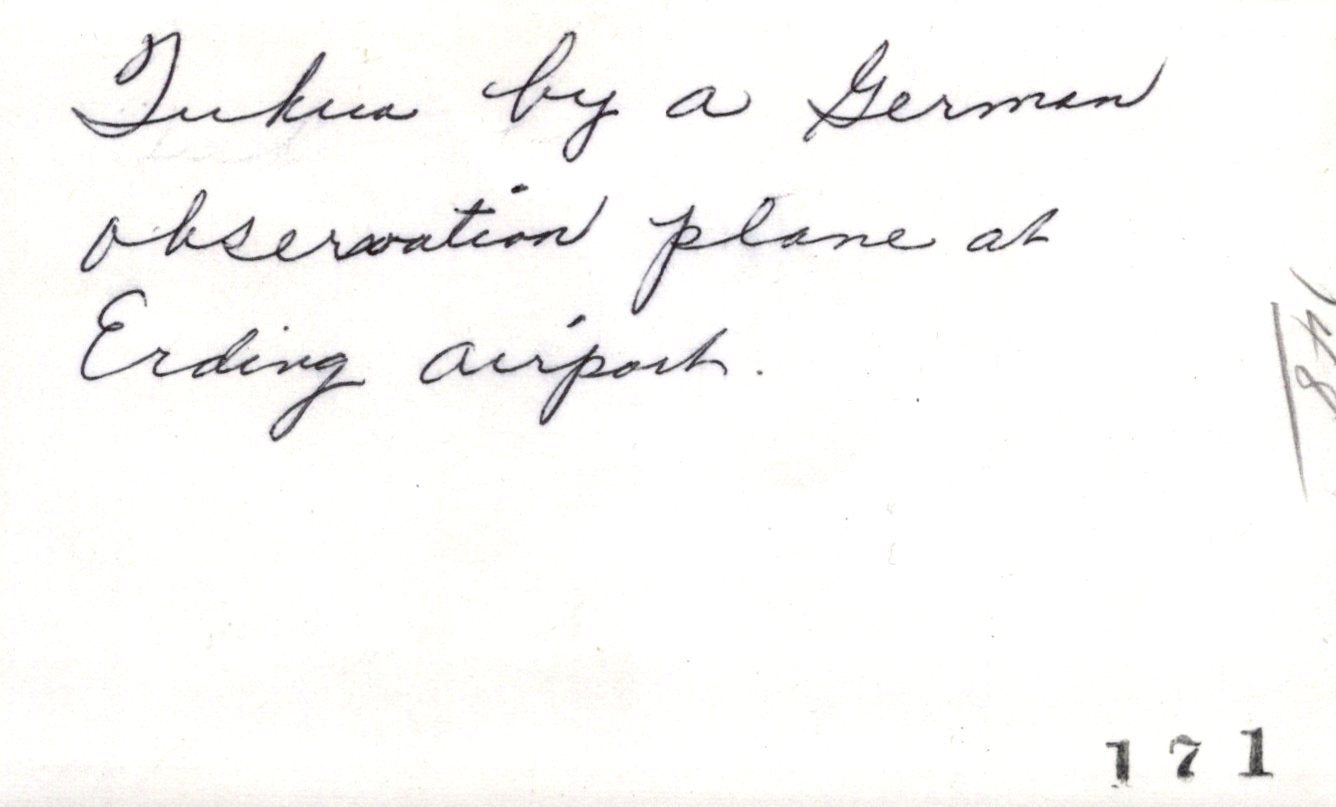 by a German
observation plane at
Erding airport.
171